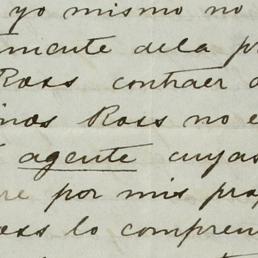 yo mismo no
mente dela p
Ross contraer
nos Ross no e
agente cuyas
re por mis pro
oss lo compren